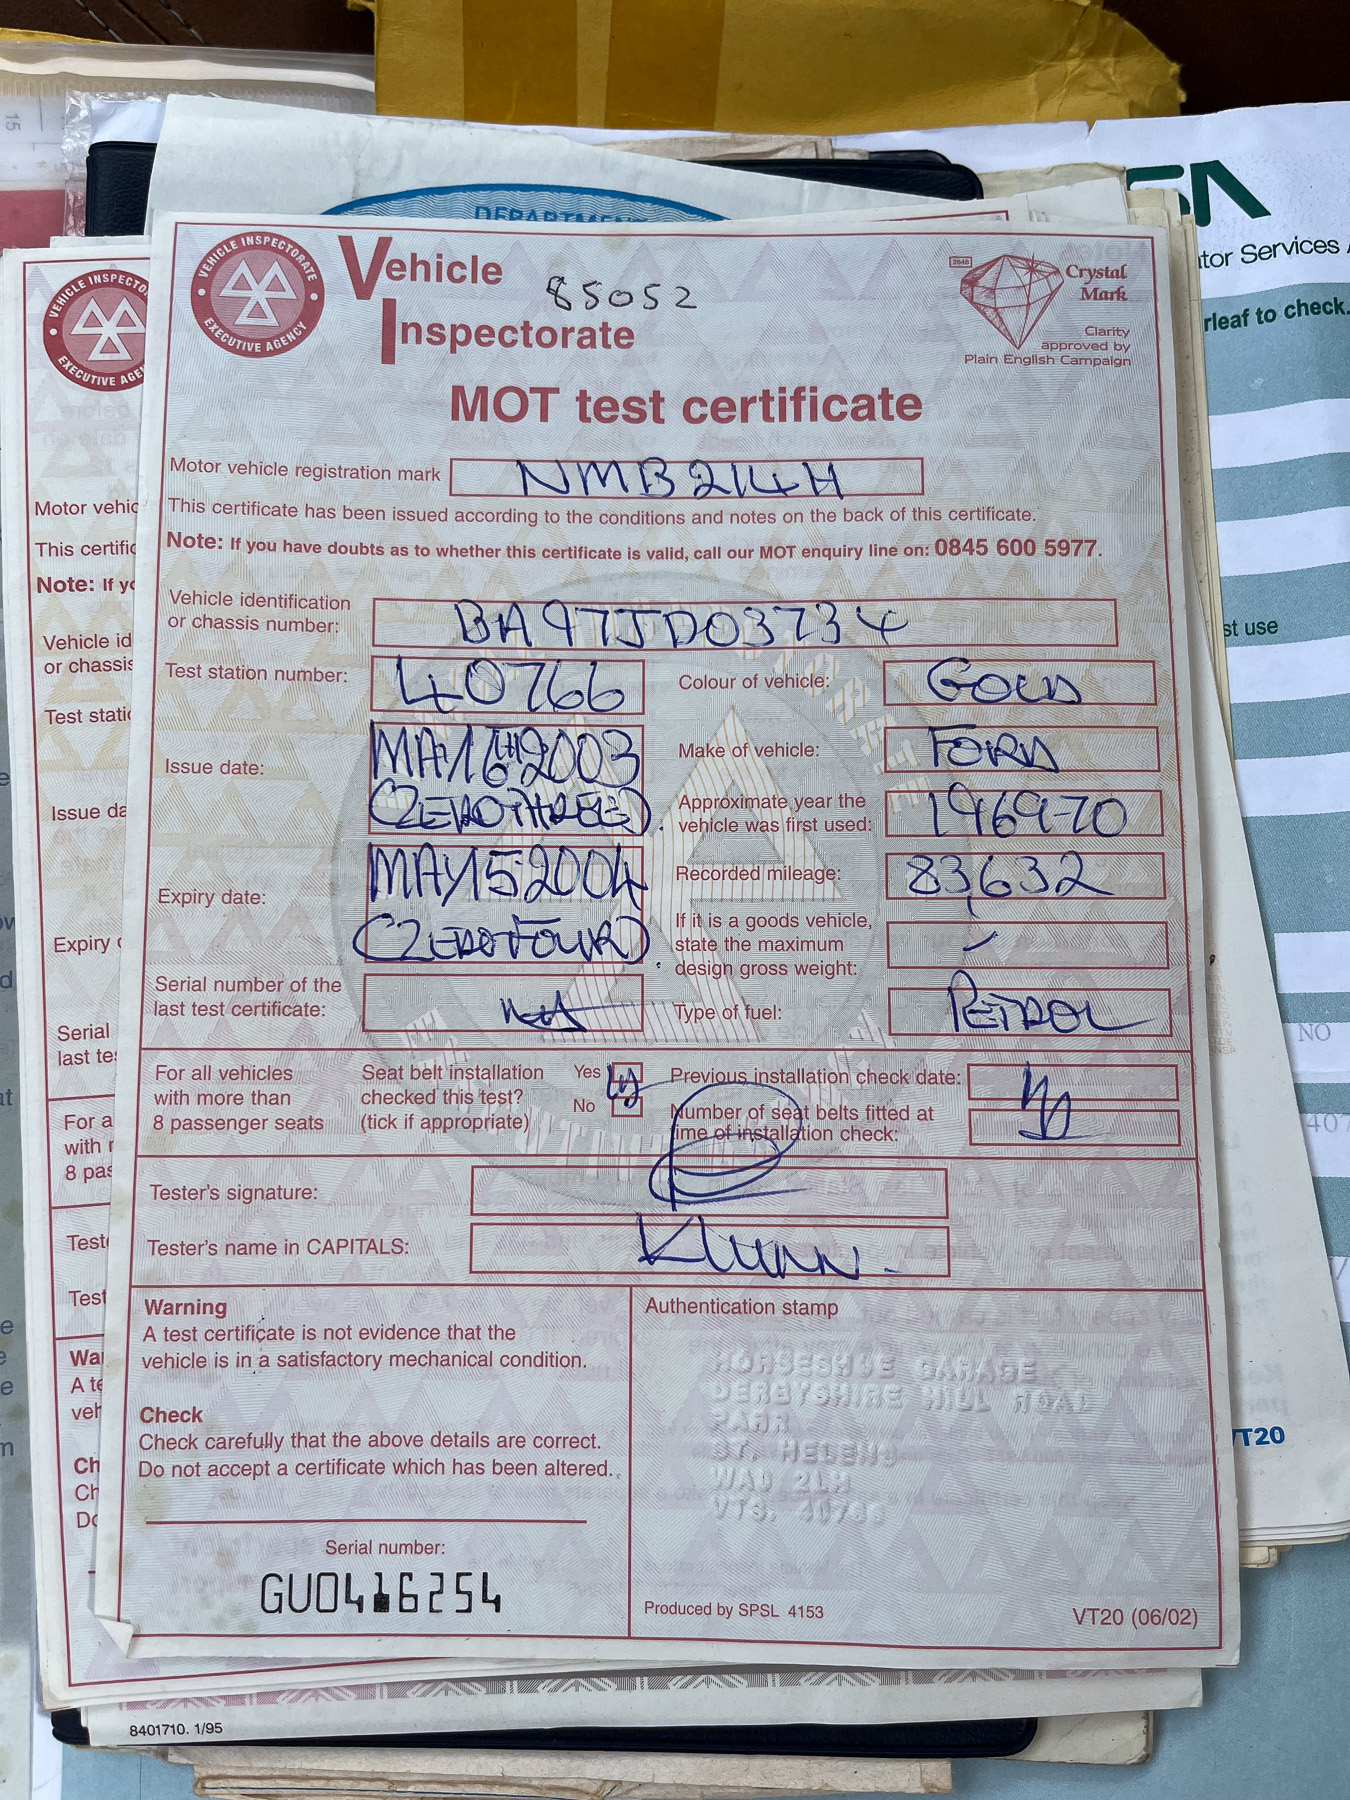 DEPARTMEN
VEHICLE INSPECTORATE
EXECUTIVE AGENCY
Vehicle
Inspectorate
85052
2848
Crystal
Mark
Clarity
approved by
Plain English Campaign
MOT test certificate
Motor vehicle registration mark NMB214H
This certificate has been issued according to the conditions and notes on the back of this certificate.
Note: If you have doubts as to whether this certificate is valid, call our MOT enquiry line on: 0845 600 5977.
Vehicle identification
or chassis number: BA97JD03734
Test station number: 40766
Colour of vehicle: GOLD
Issue date: MAY 16TH 2003
(ZERO THREE).
Make of vehicle: FORD
Approximate year the
vehicle was first used: 1969-70
Expiry date: MAY 15 2004
(ZERO FOUR).
Recorded mileage: 83,632
If it is a goods vehicle,
state the maximum
design gross weight:
Serial number of the
last test certificate:
Type of fuel: PETROL
For all vehicles
with more than
8 passenger seats
Seat belt installation
checked this test?
(tick if appropriate)
Yes
No
Previous installation check date:
Number of seat belts fitted at
time of installation check:
Tester's signature:
Tester's name in CAPITALS:
Warning
A test certificate is not evidence that the
vehicle is in a satisfactory mechanical condition.
Check
Check carefully that the above details are correct.
Do not accept a certificate which has been altered.
Serial number:
GU0416254
Authentication stamp
HORSESHOE GARAGE
DERBYSHIRE HILL ROAD
PARR
ST. HELENS
WA9 2LH
VTS. 40766
Produced by SPSL 4153
VT20 (06/02)
8401710. 1/95
VEHICLE INSPECTO
EXECUTIVE AGE
Motor vehic
This certific
Note: If yo
Vehicle id
or chassis
Test static
Issue da
Expiry
Serial
last te
For a
with
8 pas
Test
Test
Wa
A te
veh
Ch
Ch
Do
SA
tor Services
rleaf to check.
st use
NO
407
VT20
15